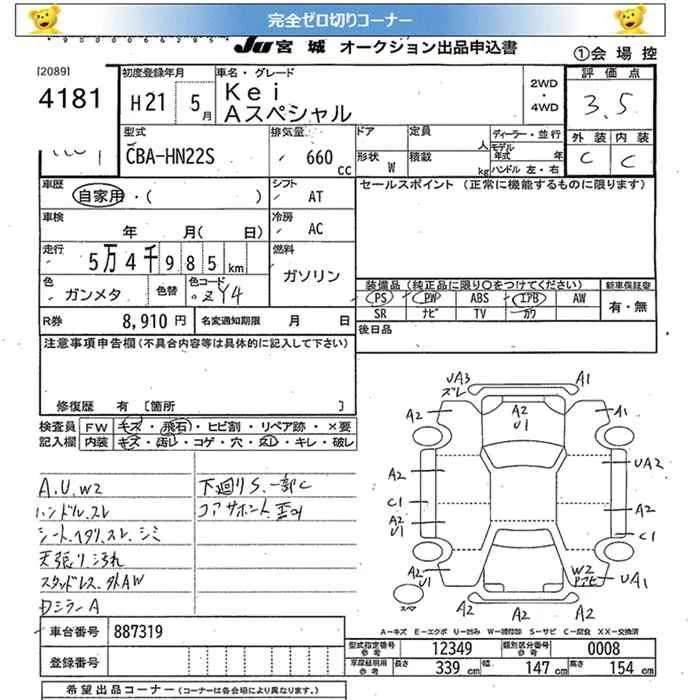 完全ゼロ切りコーナー
JU宮城 オークション出品申込書
①会場控
[2089]
4181
初度登録年月
H21 5月
車名・グレード
Kei
Aスペシャル
2WD
・
4WD
評価点
3.5
外装 内装
C C
型式
CBA-HN22S
排気量
660 cc
ドア
形状 W
定員 人
積載 kg
ディーラー・並行
モデル年式 年
ハンドル 左・右
車歴
自家用・( )
シフト
AT
セールスポイント (正常に機能するものに限ります)
車検
年 月( 日)
冷房
AC
走行
5万4千985km
燃料
ガソリン
色
ガンメタ
色替
色コード
ZY4
装備品 (純正品に限り○をつけてください)
新車保証書
PS PW ABS エアB AW
SR ナビ TV カワ
有・無
R券
8,910円
名変通知期限 月 日
後日品
注意事項申告欄(不具合内容等は具体的に記入して下さい)
修復歴 有 [箇所 ]
検査員
記入欄
FW キズ・飛石・ヒビ割・リペア跡・×要
内装 キズ・汚レ・コゲ・穴・スレ・キレ・破レ
A.U.W2
ハンドル.スレ
シートヘタリ.スレ.シミ
天張リ汚れ
スタッドレス.外AW
Dミラー A
下廻りS.一部C
コアサポート歪み
UA3
ズレ
A1
A2
A2
U1
A1
A2
UA2
C1
A2
U1
A2
C1
A2
U1
W2
UA1
A2
A2
A2
スペア
A−キズ E−エクボ U−凹み W−補修跡 S−サビ C−腐食 XX−交換済
車台番号
887319
登録番号
型式指定番号
参考
12349
類別区分番号
参考
0008
車庫証明用
参考
長さ
339 cm
幅
147 cm
高さ
154 cm
希望出品コーナー (コーナーは各会場により異なります。)